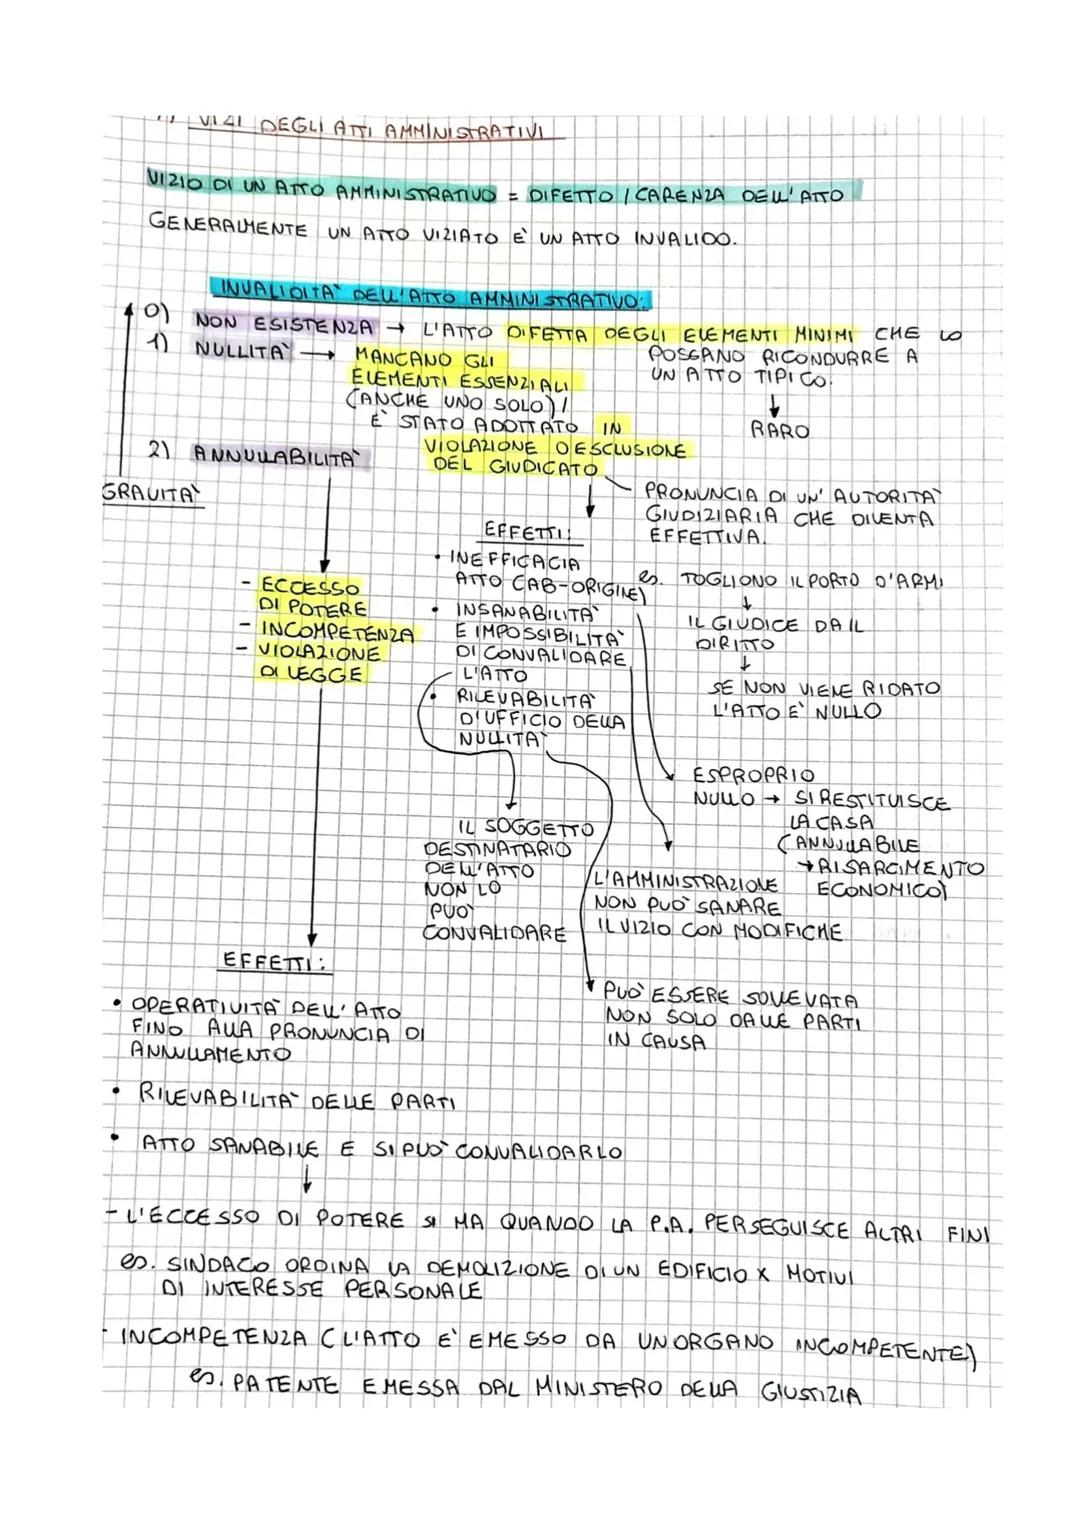 VIZI DEGLI ATTI AMMINISTRATIVI
VIZIO DI UN ATTO AMMINISTRATIVO = DIFETTO / CARENZA DELL'ATTO
GENERALMENTE UN ATTO VIZIATO E' UN ATTO INVALIDO.
INVALIDITA' DELL'ATTO AMMINISTRATIVO:
0) NON ESISTENZA → L'ATTO DIFETTA DEGLI ELEMENTI MINIMI CHE LO
POSSANO RICONDURRE A
UN ATTO TIPICO.
↓
RARO
1) NULLITA' → MANCANO GLI
ELEMENTI ESSENZIALI
(ANCHE UNO SOLO) /
E' STATO ADOTTATO IN
VIOLAZIONE O ESCLUSIONE
DEL GIUDICATO
2) ANNULLABILITA'
GRAVITA'
PRONUNCIA DI UN'AUTORITA'
GIUDIZIARIA CHE DIVENTA
EFFETTIVA.
es. TOGLIONO IL PORTO D'ARMI
↓
IL GIUDICE DA IL
DIRITTO
↓
SE NON VIENE RIDATO
L'ATTO E' NULLO
EFFETTI:
• INEFFICACIA
ATTO (AB-ORIGINE)
• INSANABILITA'
E IMPOSSIBILITA'
DI CONVALIDARE
L'ATTO
• RILEVABILITA'
D'UFFICIO DELLA
NULLITA'
- ECCESSO
DI POTERE
- INCOMPETENZA
- VIOLAZIONE
DI LEGGE
ESPROPRIO
NULLO → SI RESTITUISCE
LA CASA
(ANNULLABILE
→ RISARCIMENTO
ECONOMICO)
IL SOGGETTO
DESTINATARIO
DELL'ATTO
NON LO
PUO'
CONVALIDARE
L'AMMINISTRAZIONE
NON PUO' SANARE
IL VIZIO CON MODIFICHE
PUO' ESSERE SOLLEVATA
NON SOLO DALLE PARTI
IN CAUSA
EFFETTI:
• OPERATIVITA' DELL'ATTO
FINO ALLA PRONUNCIA DI
ANNULLAMENTO
• RILEVABILITA' DELLE PARTI
• ATTO SANABILE E SI PUO' CONVALIDARLO
↓
- L'ECCESSO DI POTERE SI HA QUANDO LA P.A. PERSEGUISCE ALTRI FINI
es. SINDACO ORDINA LA DEMOLIZIONE DI UN EDIFICIO X MOTIVI
DI INTERESSE PERSONALE
- INCOMPETENZA (L'ATTO E' EMESSO DA UN ORGANO INCOMPETENTE)
es. PATENTE EMESSA DAL MINISTERO DELLA GIUSTIZIA